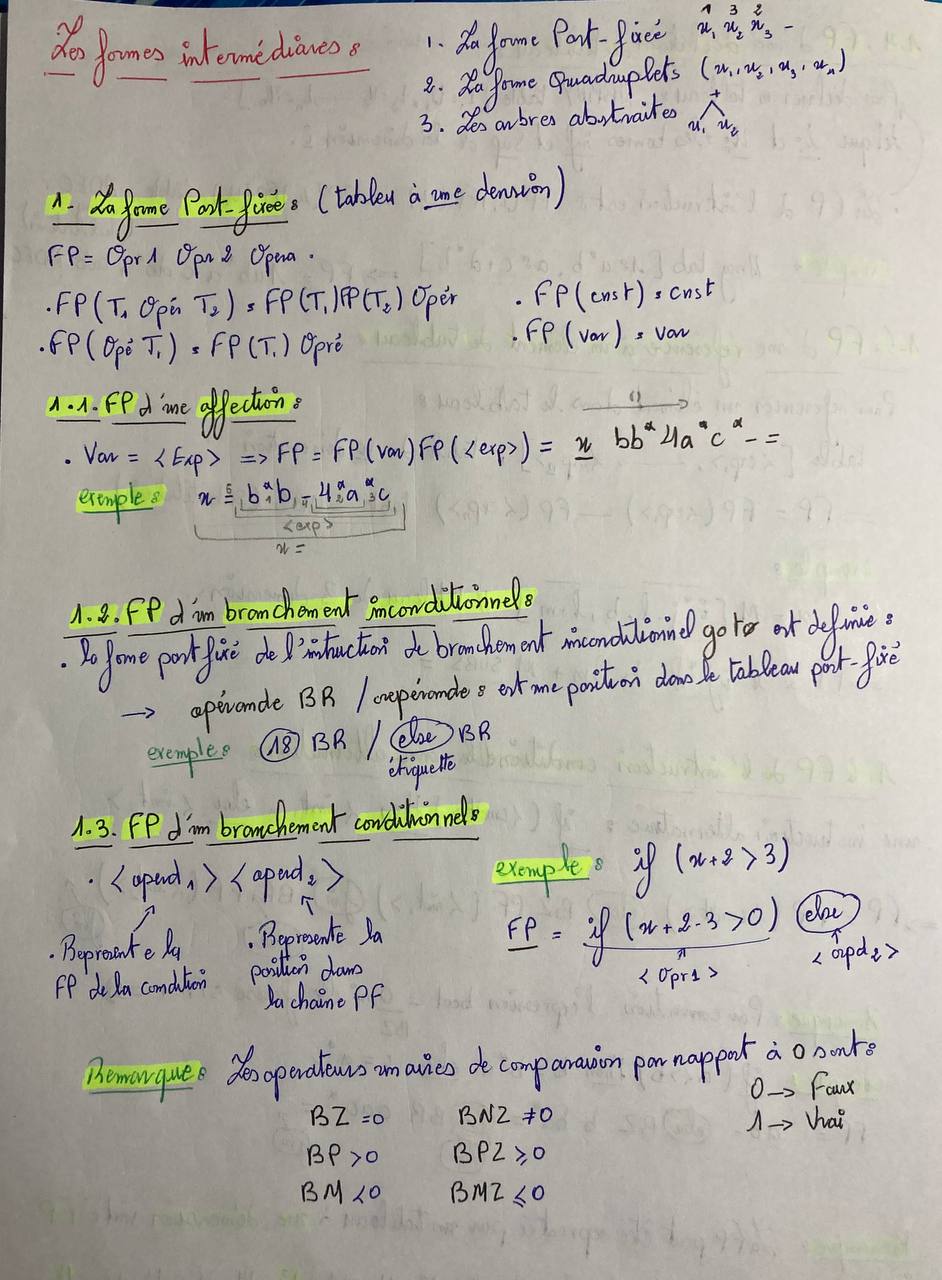 Les formes intermédiaires :
1. La forme Post-fixée x₁ x₂ x₃ -
1 3 2
2. La forme Quadruplets (x₁, x₂, x₃, x₄)
3. Les arbres abstraites
+
x₁ x₂
1- La forme Post-fixée : (tableu à une dension)
FP = Opr1 Opr2 Opera .
. FP(T₁ Opér T₂) = FP(T₁)FP(T₂) Opér
. FP(cnst) = cnst
. FP(Opé T₁) = FP(T₁) Opré
. FP(var) = var
1.1. FP d'une affection :
. Var = <Exp> => FP = FP(var)FP(<exp>) = x bb*4a*c*- =
exemple : x = b * b - 4 * a * c
5 1 4 2 3
<exp>
x =
1.2. FP d'un branchement inconditionnel :
. la fome post fixé de l'intruction de branchement inconditionnel goto est definie :
→ opérande BR / oropérande : est une position dans le tableau post-fixé
exemple : 18 BR / else BR
étiquette
1.3. FP d'un branchement conditionnel :
. <opend₁> <opend₂>
. Represent e la
FP de la condition
. Represente la
position dans
la chaîne PF
exemple : if (x+2>3)
FP = if (x+2-3>0) else
<Opr1>
<orpd₂>
Remarque : Les operateurs unaires de comparaison par rapport à 0 sont :
0 → Faux
1 → Vrai
BZ =0 BNZ ≠0
BP >0 BPZ ≥0
BM <0 BMZ ≤0